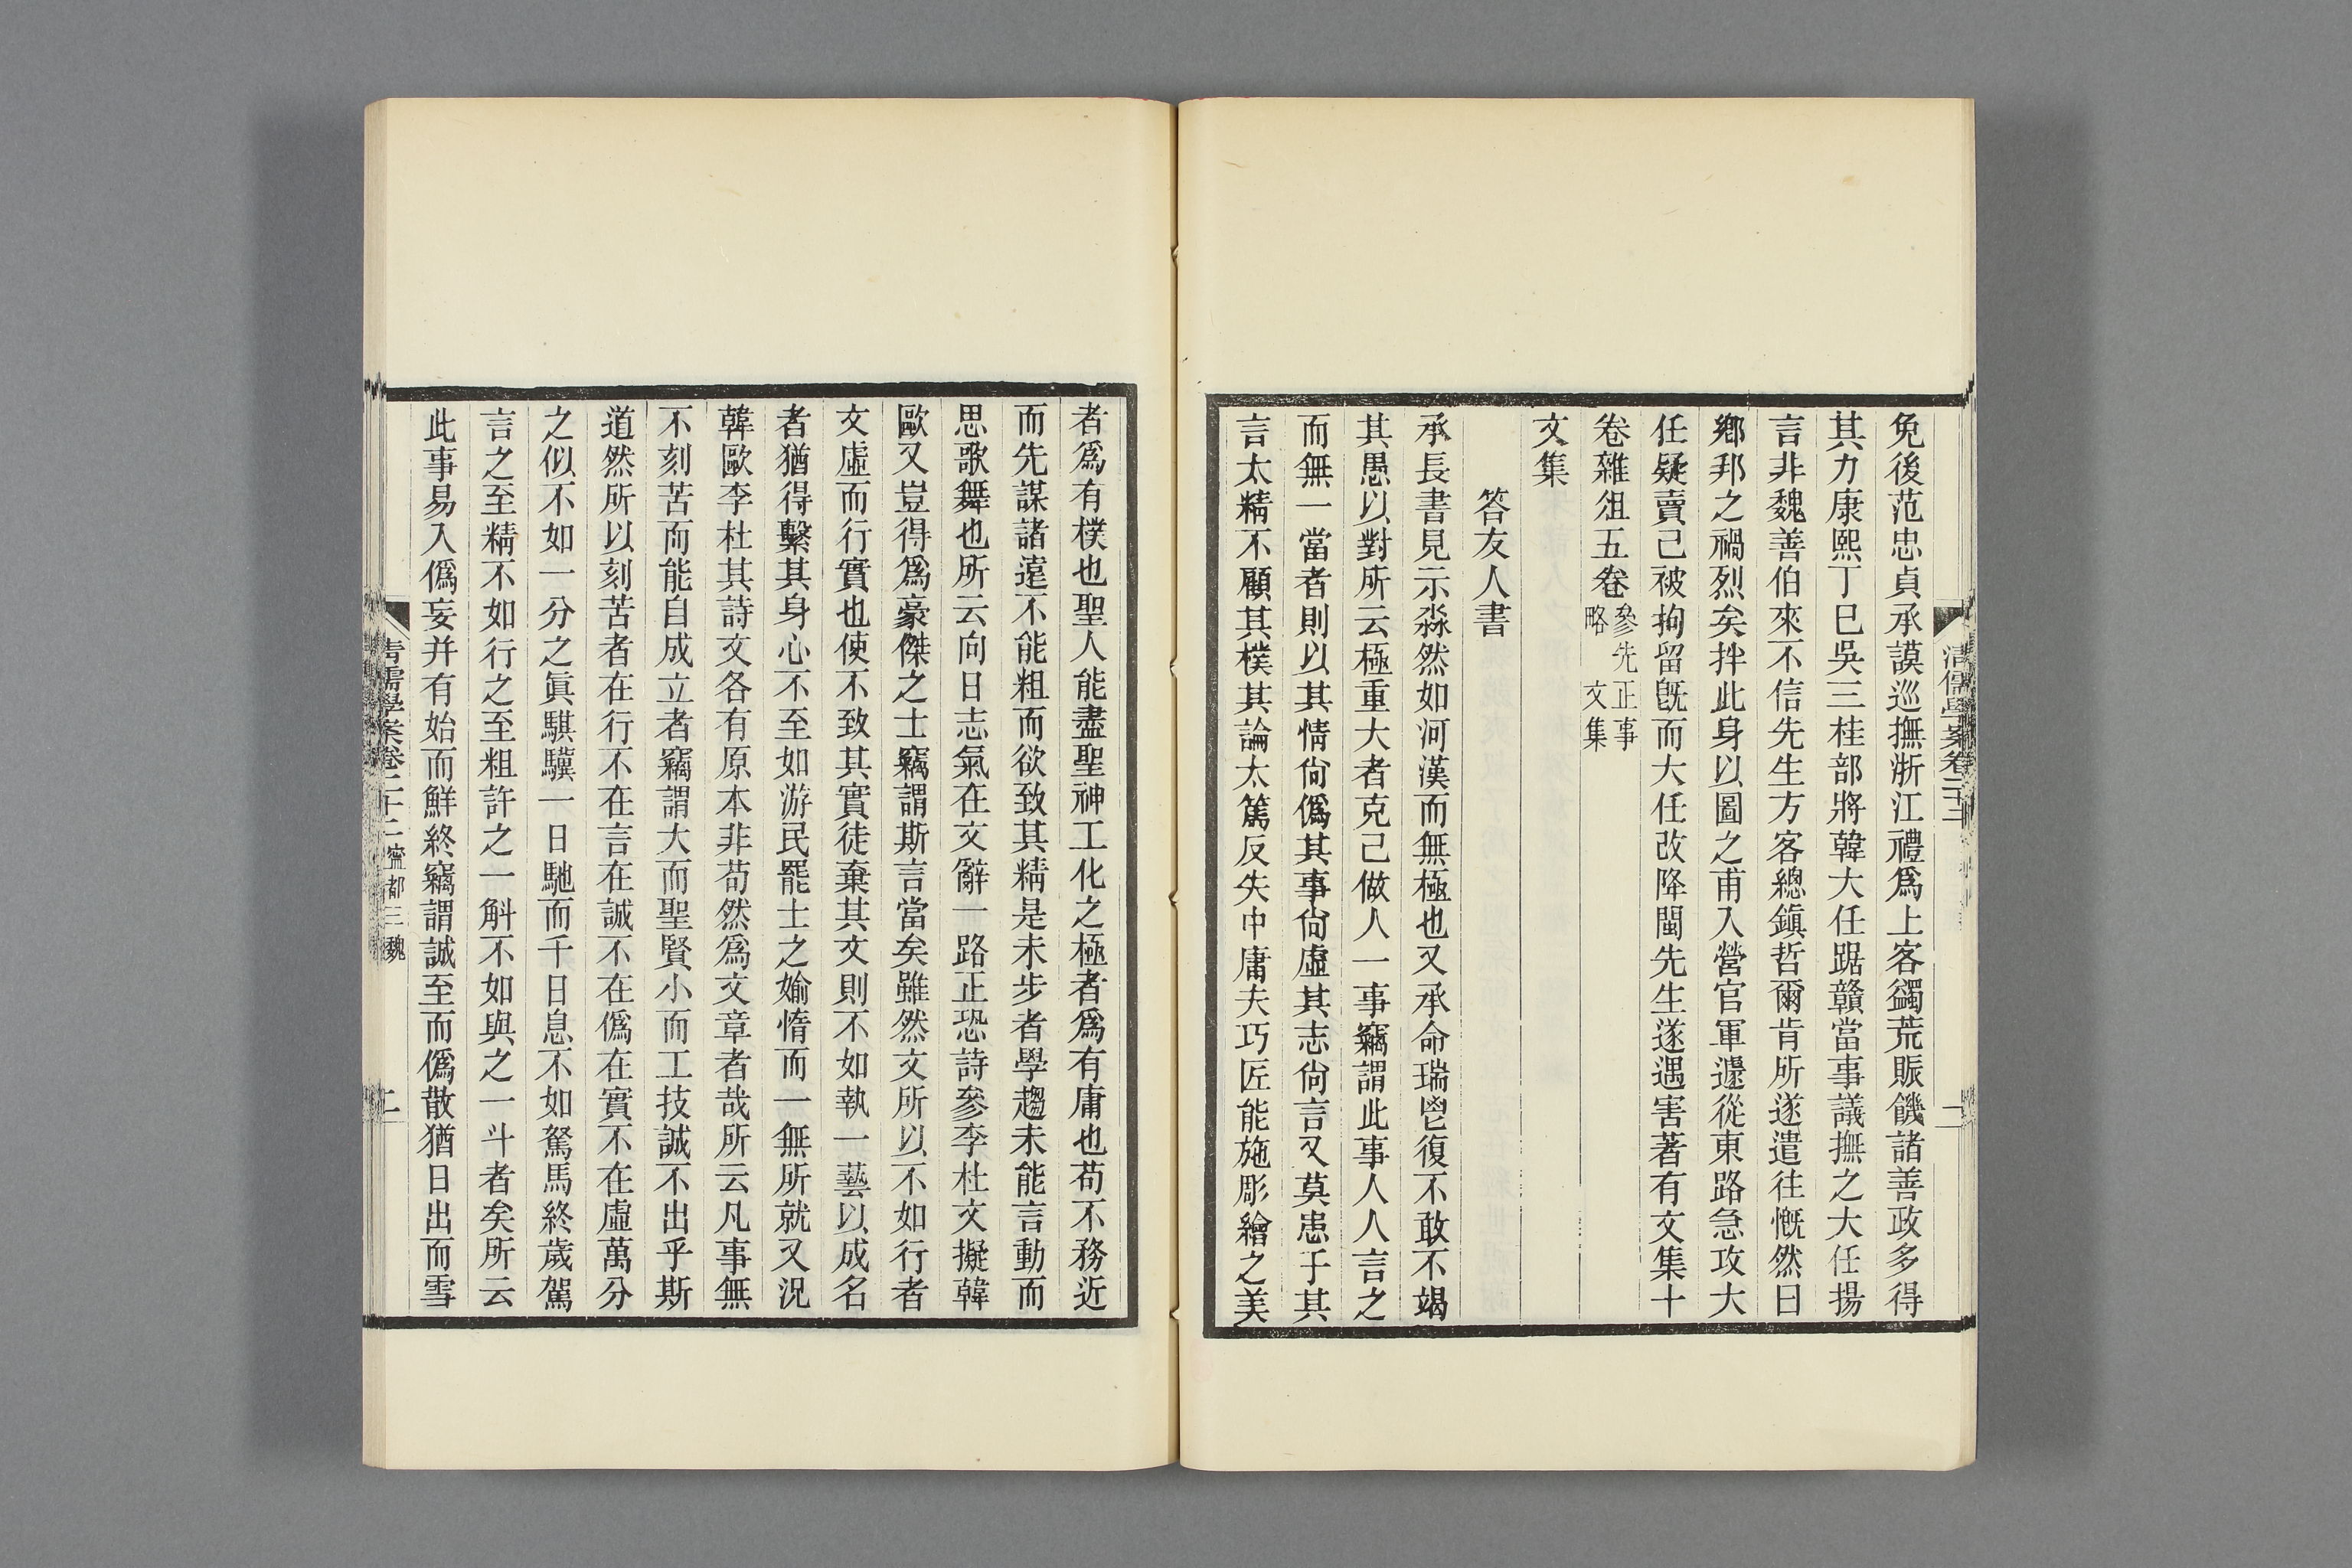 免後范忠貞承謨巡撫浙江禮爲上客蠲荒賑饑諸善政多得
其力康熙丁巳吳三桂部將韓大任踞贛當事議撫之大任揚
言非魏善伯來不信先生方客總鎮哲爾肯所遂遣往慨然曰
鄉邦之禍烈矣拌此身以圖之甫入營官軍遽從東路急攻大
任疑賣己被拘留旣而大任改降閩先生遂遇害著有文集十
卷雜俎五卷 參先正事略 文集
文集
答友人書
承長書見示淼然如河漢而無極也又承命瑞鬯復不敢不竭
其愚以對所云極重大者克己做人一事竊謂此事人人言之
而無一當者則以其情尙僞其事尙虛其志尙言又莫患于其
言太精不顧其樸其論太篤反失中庸夫巧匠能施彫繪之美
清儒學案卷二十二
二
者爲有樸也聖人能盡聖神工化之極者爲有庸也苟不務近
而先謀諸遠不能粗而欲致其精是未步者學趨未能言動而
思歌舞也所云向日志氣在文辭一路正恐詩參李杜文擬韓
歐又豈得爲豪傑之士竊謂斯言當矣雖然文所以不如行者
文虛而行實也使不致其實徒棄其文則不如執一藝以成名
者猶得繫其身心不至如游民罷士之媮惰而一無所就又況
韓歐李杜其詩文各有原本非苟然爲文章者哉所云凡事無
不刻苦而能自成立者竊謂大而聖賢小而工技誠不出乎斯
道然所以刻苦者在行不在言在誠不在僞在實不在虛萬分
之似不如一分之眞騏驥一日馳而千日息不如駑馬終歲駕
言之至精不如行之至粗許之一斛不如與之一斗者矣所云
此事易入僞妄并有始而鮮終竊謂誠至而僞散猶日出而雪
清儒學案卷二十二 寧都三魏
二